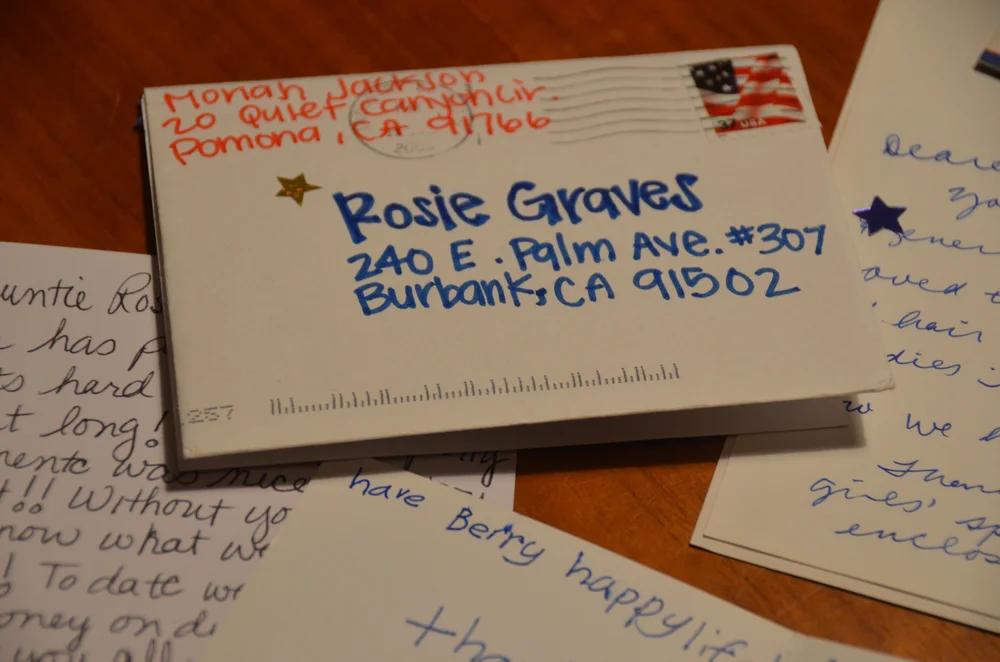 Monah Jackson
20 Quiet Canyon Cir.
Pomona, CA 91766
37 USA
Rosie Graves
240 E. Palm Ave. #307
Burbank, CA 91502
257
untie Ros
has p
s hard
t long!
was nice
!! Without yo
now what we
! To date we
oney on d
you all
have Berry happy life
tha
Dear
yo
ener
oved t
hair
dies
w we h
than
girls' sp
enclos